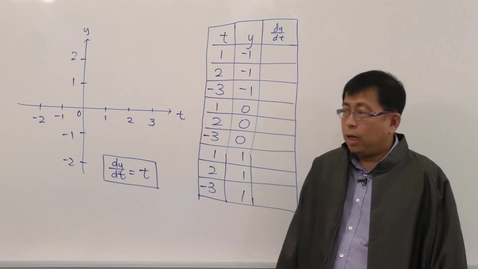 y
2
1
-2 -1 0 1 2 3 t
-1
-2
dy/dt = t
t y dy/dt
1 -1
2 -1
-3 -1
1 0
2 0
-3 0
1 1
2 1
-3 1